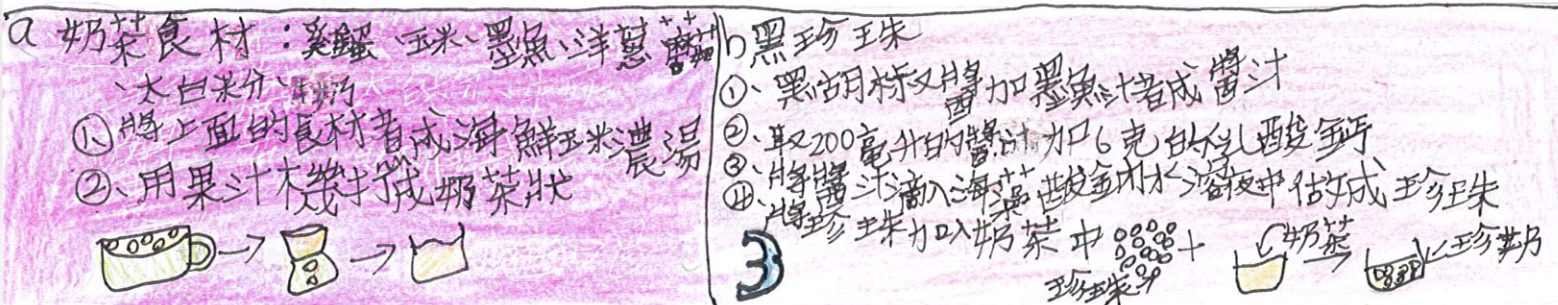 a 奶茶食材：雞蛋、玉米、墨魚、洋蔥、蘑菇
、太白粉、牛奶
①、將上面的食材煮成海鮮玉米濃湯
②、用果汁機打成奶茶狀
b 黑珍珠
①、黑胡椒醬加墨魚汁煮成醬汁
②、取200毫升的醬汁加6克的乳酸鈣
③、將醬汁滴入海藻酸鈉水溶液中做成珍珠
④、將珍珠加入奶茶中
珍珠
奶茶
珍奶
3